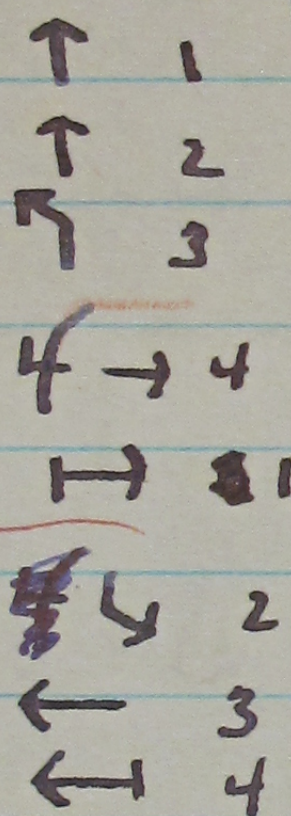 ↑ 1
↑ 2
↰ 3
4 → 4
↦ 1
↘ 2
← 3
↤ 4